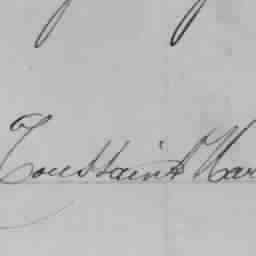 Toussaint Har